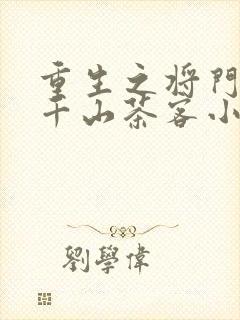 重生之将门
千山茶客小
劉學偉